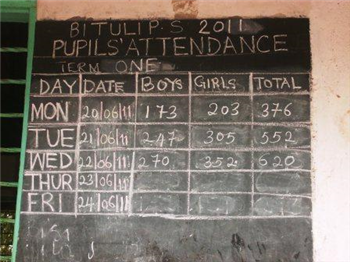 BITULI P.S 2011
PUPILS' ATTENDANCE
TERM ONE
DAY DATE BOYS GIRLS TOTAL
MON 20/06/11 173 203 376
TUE 21/06/11 247 305 552
WED 22/06/11 270 352 620
THUR 23/06/11
FRI 24/06/11